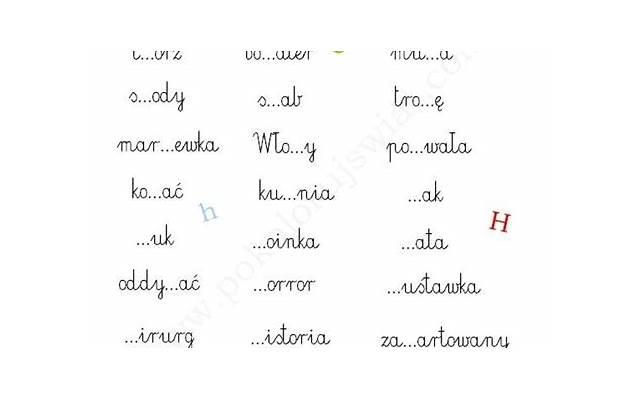 t...órz bo...ater mu...a
s...ody s...ab tro...ę
mar...ewka Wło...y po...wała
ko...ać ku...nia ...ak
h
...uk ...oinka ...ata H
oddy...ać ...orror ...ustawka
...irurg ...istoria za...artowany